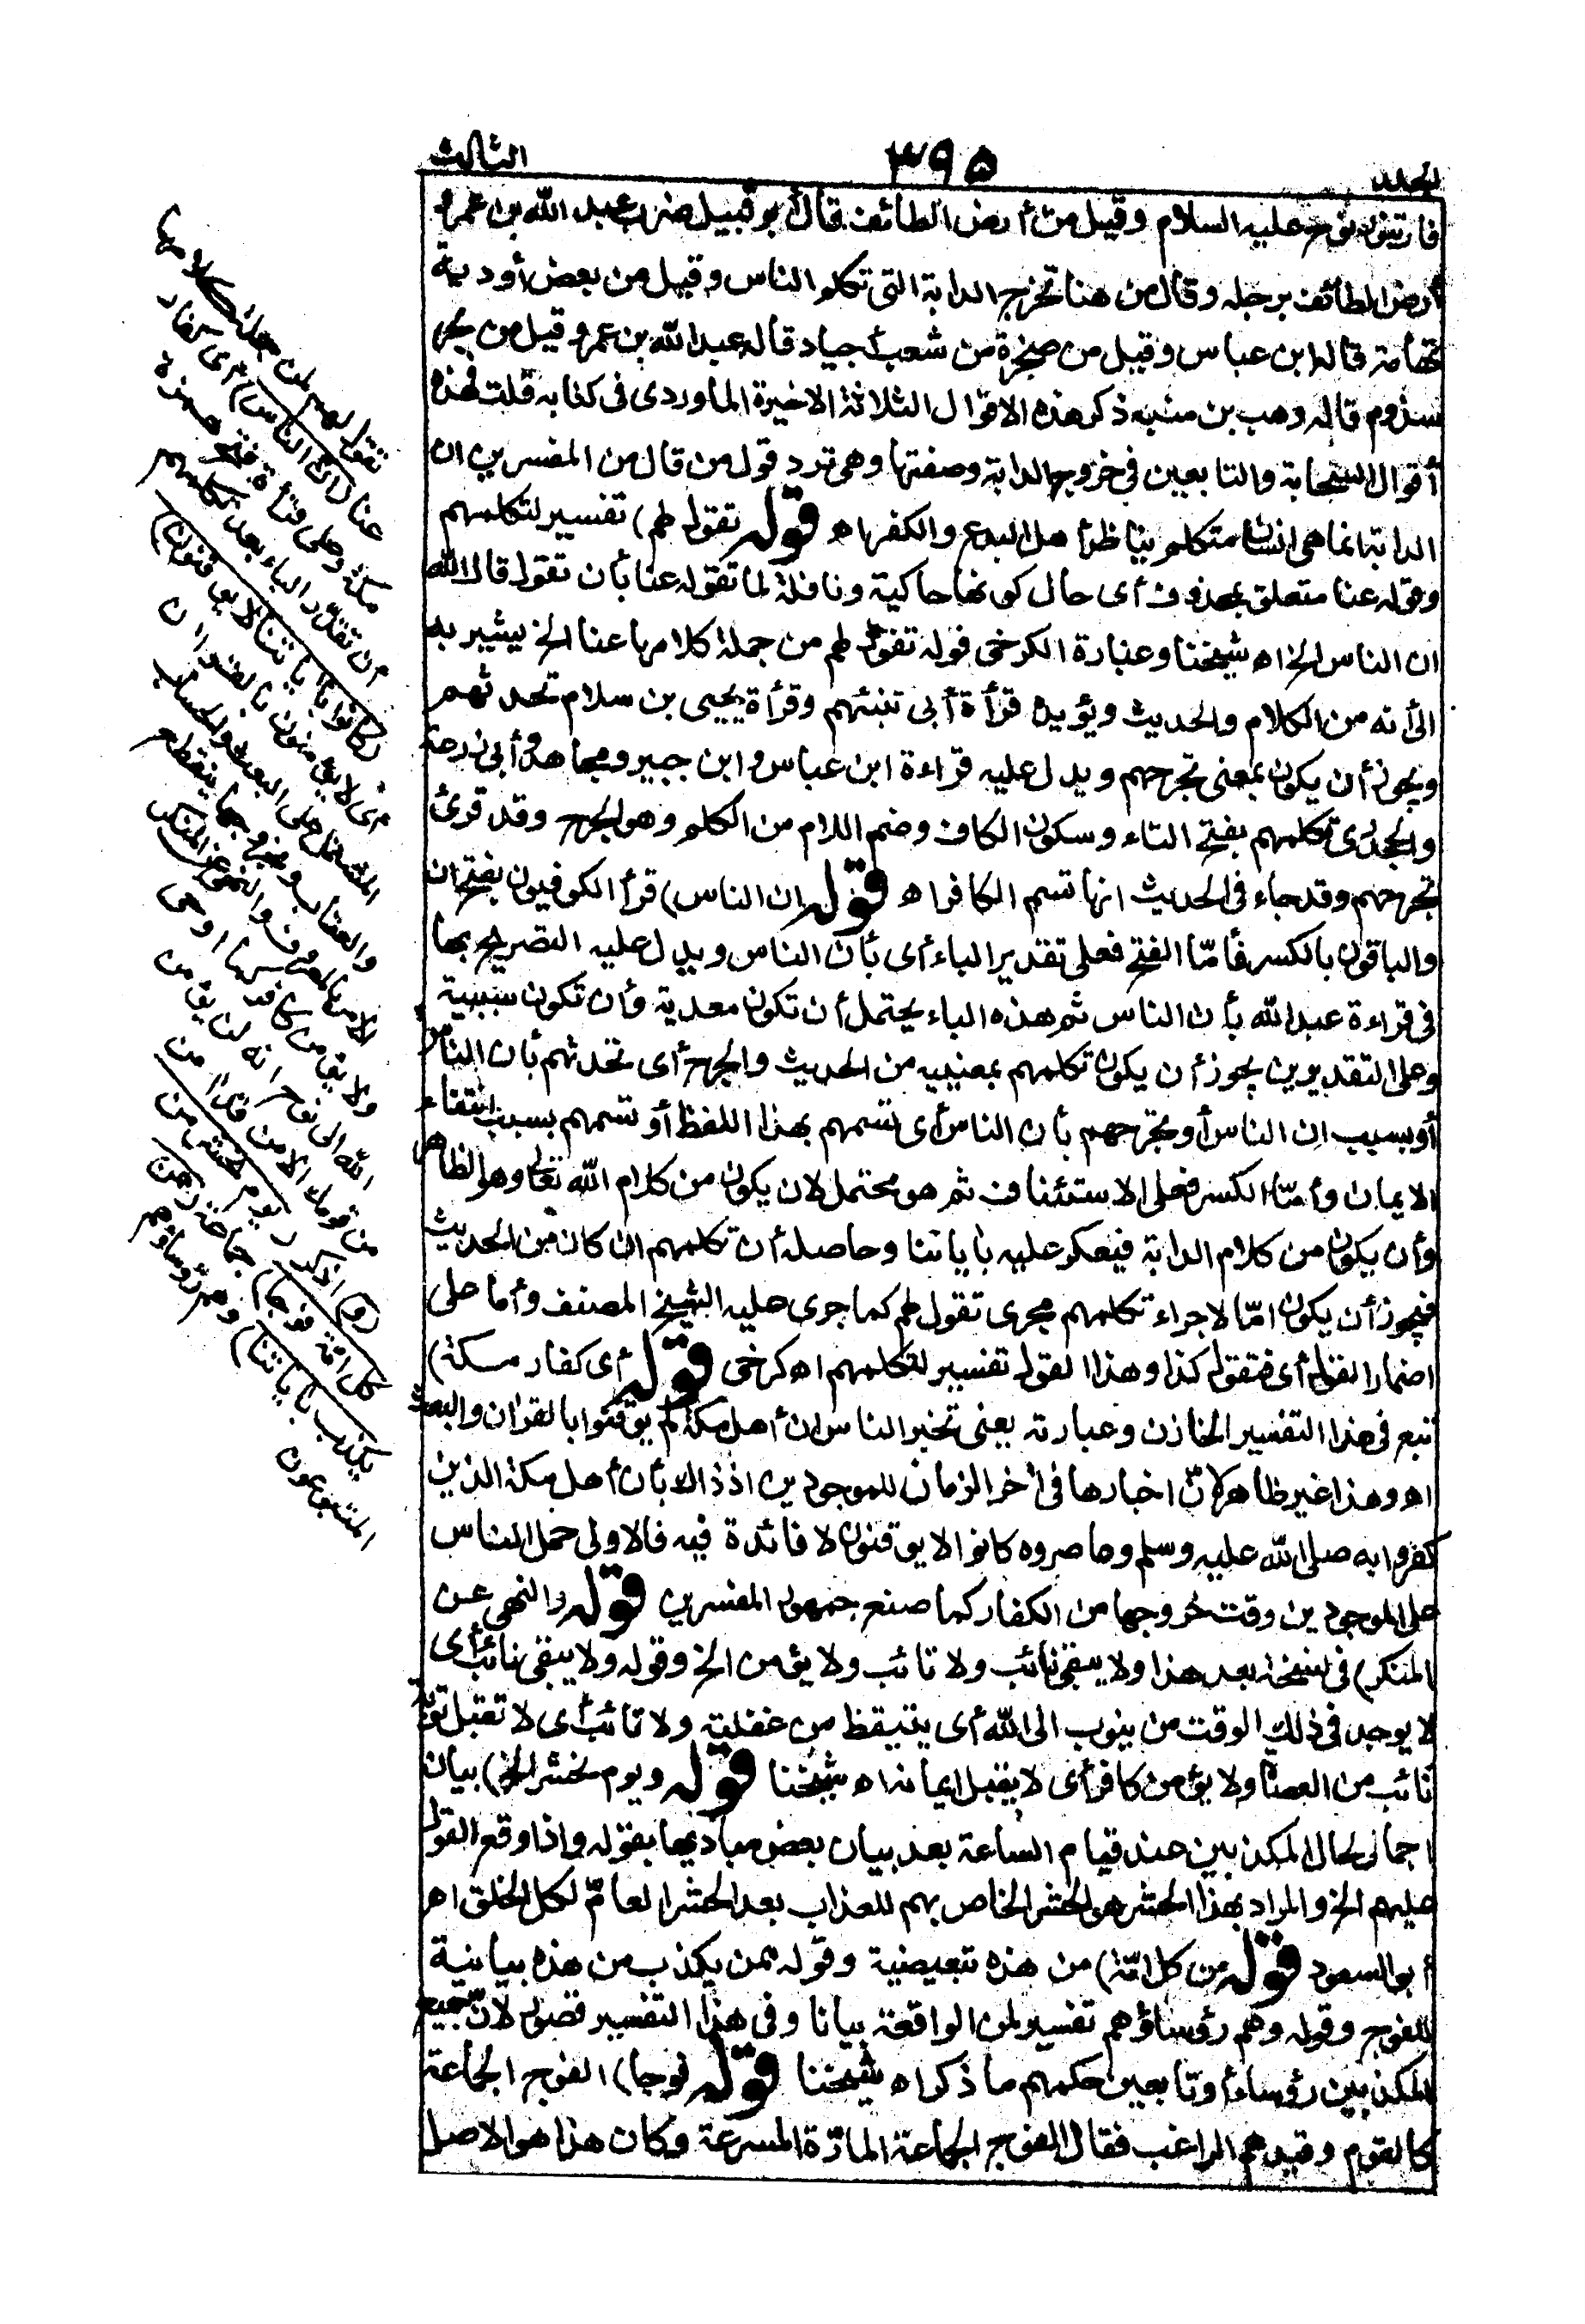 المجلد
٣٩٥
الثالث
فار تنور نوح عليه السلام وقيل من أرض الطائف قال أبو قبيل ضرب عبد الله بن عمرو
أرض الطائف برجله وقال من هنا تخرج الدابة التى تكلم الناس وقيل من بعض أودية
تهامة قاله ابن عباس وقيل من صخرة من شعب أجياد قاله عبد الله بن عمرو وقيل من بحر
سذوم قاله وهب بن منبه ذكر هذه الاقوال الثلاثة الاخيرة الماوردى فى كتابه قلت فهذه
أقوال الصحابة والتابعين فى خروج الدابة وصفتها وهى ترد قول من قال من المفسرين ان
الدابة انما هى انسان متكلم يناظر أهل البدع والكفر اه قوله تقول لهم) تفسير لتكلمهم
وقوله عنا متعلق بمحذوف أى حال كونها حاكية وناقلة لما تقوله عنا بأن تقول قال الله
ان الناس الخ اه شيخنا وعبارة الكرخى قوله تقول لهم من جملة كلامها عنا الخ يشير به
الى أنه من الكلام والحديث ويؤيده قرأة أبى تنبئهم وقرأة يحيى بن سلام تحدثهم
ويجوز أن يكون بمعنى تجرحهم ويدل عليه قراءة ابن عباس وابن جبير ومجاهد وأبى زرعة
والجحدرى تكلمهم بفتح التاء وسكون الكاف وضم اللام من الكلم وهو الجرح وقد قرئ
تجرحهم وقد جاء فى الحديث انها تسم الكافر اه قوله ان الناس) قرأ الكوفيون بفتح ان
والباقون بالكسر فأمّا الفتح فعلى تقدير الباء أى بأن الناس ويدل عليه التصريح بها
فى قراءة عبد الله بأن الناس ثم هذه الباء يحتمل أن تكون معدية وأن تكون سببية
وعلى التقديرين يجوز أن يكون تكلمهم بمعنييه من الحديث والجرح أى تحدثهم بأن الناس
أو بسبب ان الناس أو تجرحهم بأن الناس أى تسمهم بهذا اللفظ أو تسمهم بسبب انتفاء
الايمان وأمّا الكسر فعلى الاستئناف ثم هو محتمل لان يكون من كلام الله تعالى وهو الظاهر
وأن يكون من كلام الدابة فيعكر عليه بآياتنا وحاصله أن تكلمهم ان كان من الحديث
فيجوز أن يكون امّا لاجراء تكلمهم مجرى تقول لهم كما جرى عليه الشيخ المصنف وأما على
اضمار القول أى فتقول كذا وهذا القول تفسير لتكلمهم اه كرخى قوله أى كفار مكة)
تبع فى هذا التفسير الخازن وعبارته يعنى تخبر الناس ان أهل مكة لم يوقنوا بالقرآن والبعث
اه وهذا غير ظاهر لانّ اخبارها فى آخر الزمان للموجودين اذ ذاك بأن أهل مكة الذين
كفروا به صلى الله عليه وسلم وحاصروه كانوا لا يوقنون لا فائدة فيه فالاولى حمل الناس
على الموجودين وقت خروجها من الكفار كما صنع جمهور المفسرين قوله والنهى عن
المنكر) فى نسخة بعد هذا ولا يبقى نائب ولا تائب ولا يؤمن الخ وقوله ولا يبقى نائب أى
لا يوجد فى ذلك الوقت من ينوب الى الله أى يتيقظ من غفلته ولا تائب أى لا تقبل توبة
تائب من العصاة ولا يؤمن كافر أى لا يقبل ايمانه اه شيخنا قوله ويوم نحشر الخ) بيان
اجمالى لحال المكذبين عند قيام الساعة بعد بيان بعض مباديها بقوله واذا وقع القول
عليهم الخ والمراد بهذا الحشر هو الحشر الخاص بهم للعذاب بعد الحشر العامّ لكل الخلق اه
أبو السعود قوله من كل امّة) من هذه تبعيضية وقوله ممن يكذب من هذه بيانية
للفوج وقوله وهم رؤساؤهم تفسير لمن الواقعة بيانا وفى هذا التفسير قصور لانّ جميع
المكذبين رؤساء أو تابعين حكمهم ما ذكر اه شيخنا قوله فوجا) الفوج الجماعة
كالقوم وقيدهم الراغب فقال الفوج الجماعة المارّة المسرعة وكان هذا هو الاصل
تقول لهم من جملة كلامها
عنا (ان الناس) أى كفار
مكة وعلى قرأة فتح همزة
ان تقدّر الباء بعد تكلمهم
(كانوا بآياتنا لا يوقنون)
أى لا يؤمنون بالقرآن
المشتمل على البعث والحساب
والعقاب وبخروجها ينقطع
الامر بالمعروف والنهى عن المنكر
ولا يؤمن كافر كما أوحى
الله الى نوح انه لن يؤمن
من قومك الا من قد آمن
(و) اذكر (يوم نحشر من
كل امّة فوجا) جماعة (ممن
يكذب بآياتنا) وهم رؤساؤهم
المتبوعون